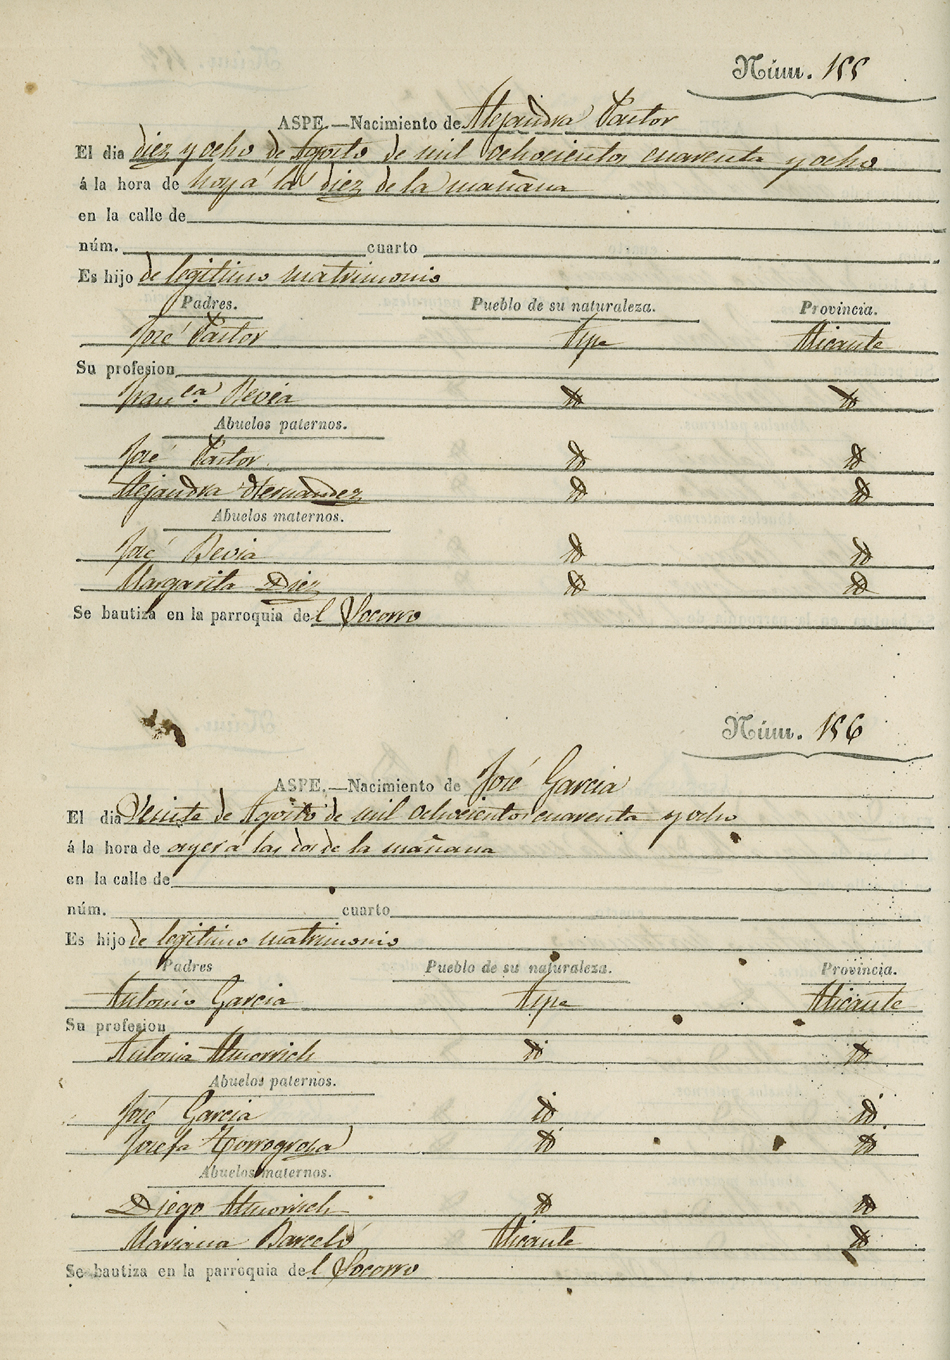 Núm. 155
ASPE.—Nacimiento de Alejandra Pastor
El dia diez y ocho de Agosto de mil ochocientos cuarenta y ocho
á la hora de hoy á las diez de la mañana
en la calle de
núm. cuarto
Es hijo de legitimo matrimonio
Padres. Pueblo de su naturaleza. Provincia.
José Pastor Aspe Alicante
Su profesion
Fran.ca Bevia id id
Abuelos paternos.
José Pastor id id
Alejandra Hernandez id id
Abuelos maternos.
José Bevia id id
Margarita Diez id id
Se bautiza en la parroquia del Socorro
Núm. 156
ASPE.—Nacimiento de José Garcia
El dia Veinte de Agosto de mil ochocientos cuarenta y ocho
á la hora de ayer á las dos de la mañana
en la calle de
núm. cuarto
Es hijo de legitimo matrimonio
Padres Pueblo de su naturaleza. Provincia.
Antonio Garcia Aspe Alicante
Su profesion
Antonia Almorrich id id
Abuelos paternos.
José Garcia id id
Josefa Torregrosa id id
Abuelos maternos.
Diego Almorrich id id
Mariana Barceló Alicante id
Se bautiza en la parroquia del Socorro